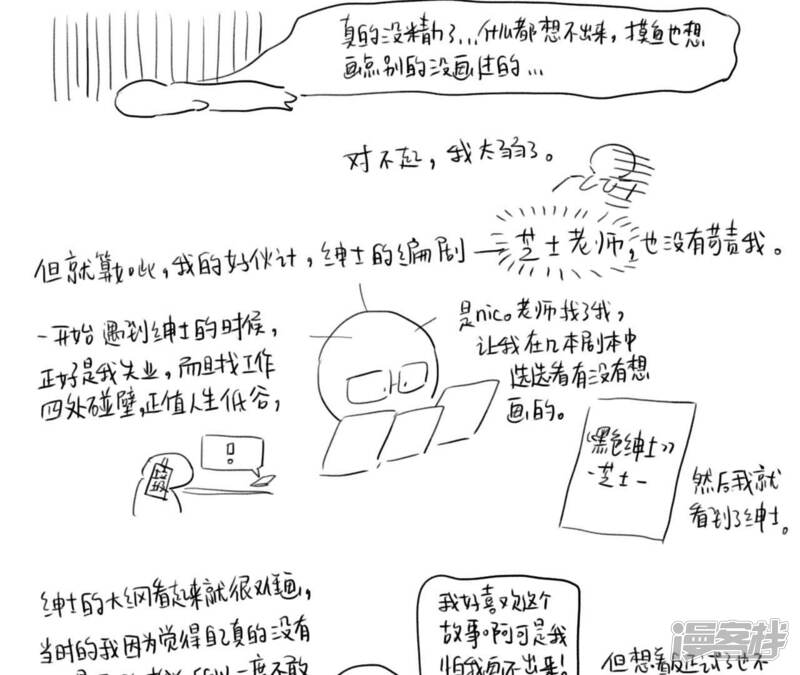 真的没精力了...什么都想不出来，摸鱼也想
画点别的没画过的...
对不起，我太弱了。
但就算如此，我的好伙计，绅士的编剧—芝士老师，也没有苛责我。
一开始遇到绅士的时候，
正好是我失业，而且找工作
四处碰壁，正值人生低谷，
是nico老师找了我，
让我在几本剧本中
选选看有没有想
画的。
《黑色绅士》
-芝士-
然后我就
看到了绅士。
绅士的大纲看起来就很难画，
当时的我因为觉得自己真的没有
一度不敢
我好喜欢这个
故事啊可是我
怕我画不出来！
但想着反正试了也不
漫客栈